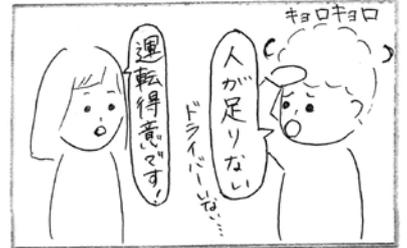 キョロキョロ
人が足りない
ドライバーいない…
運転得意です!